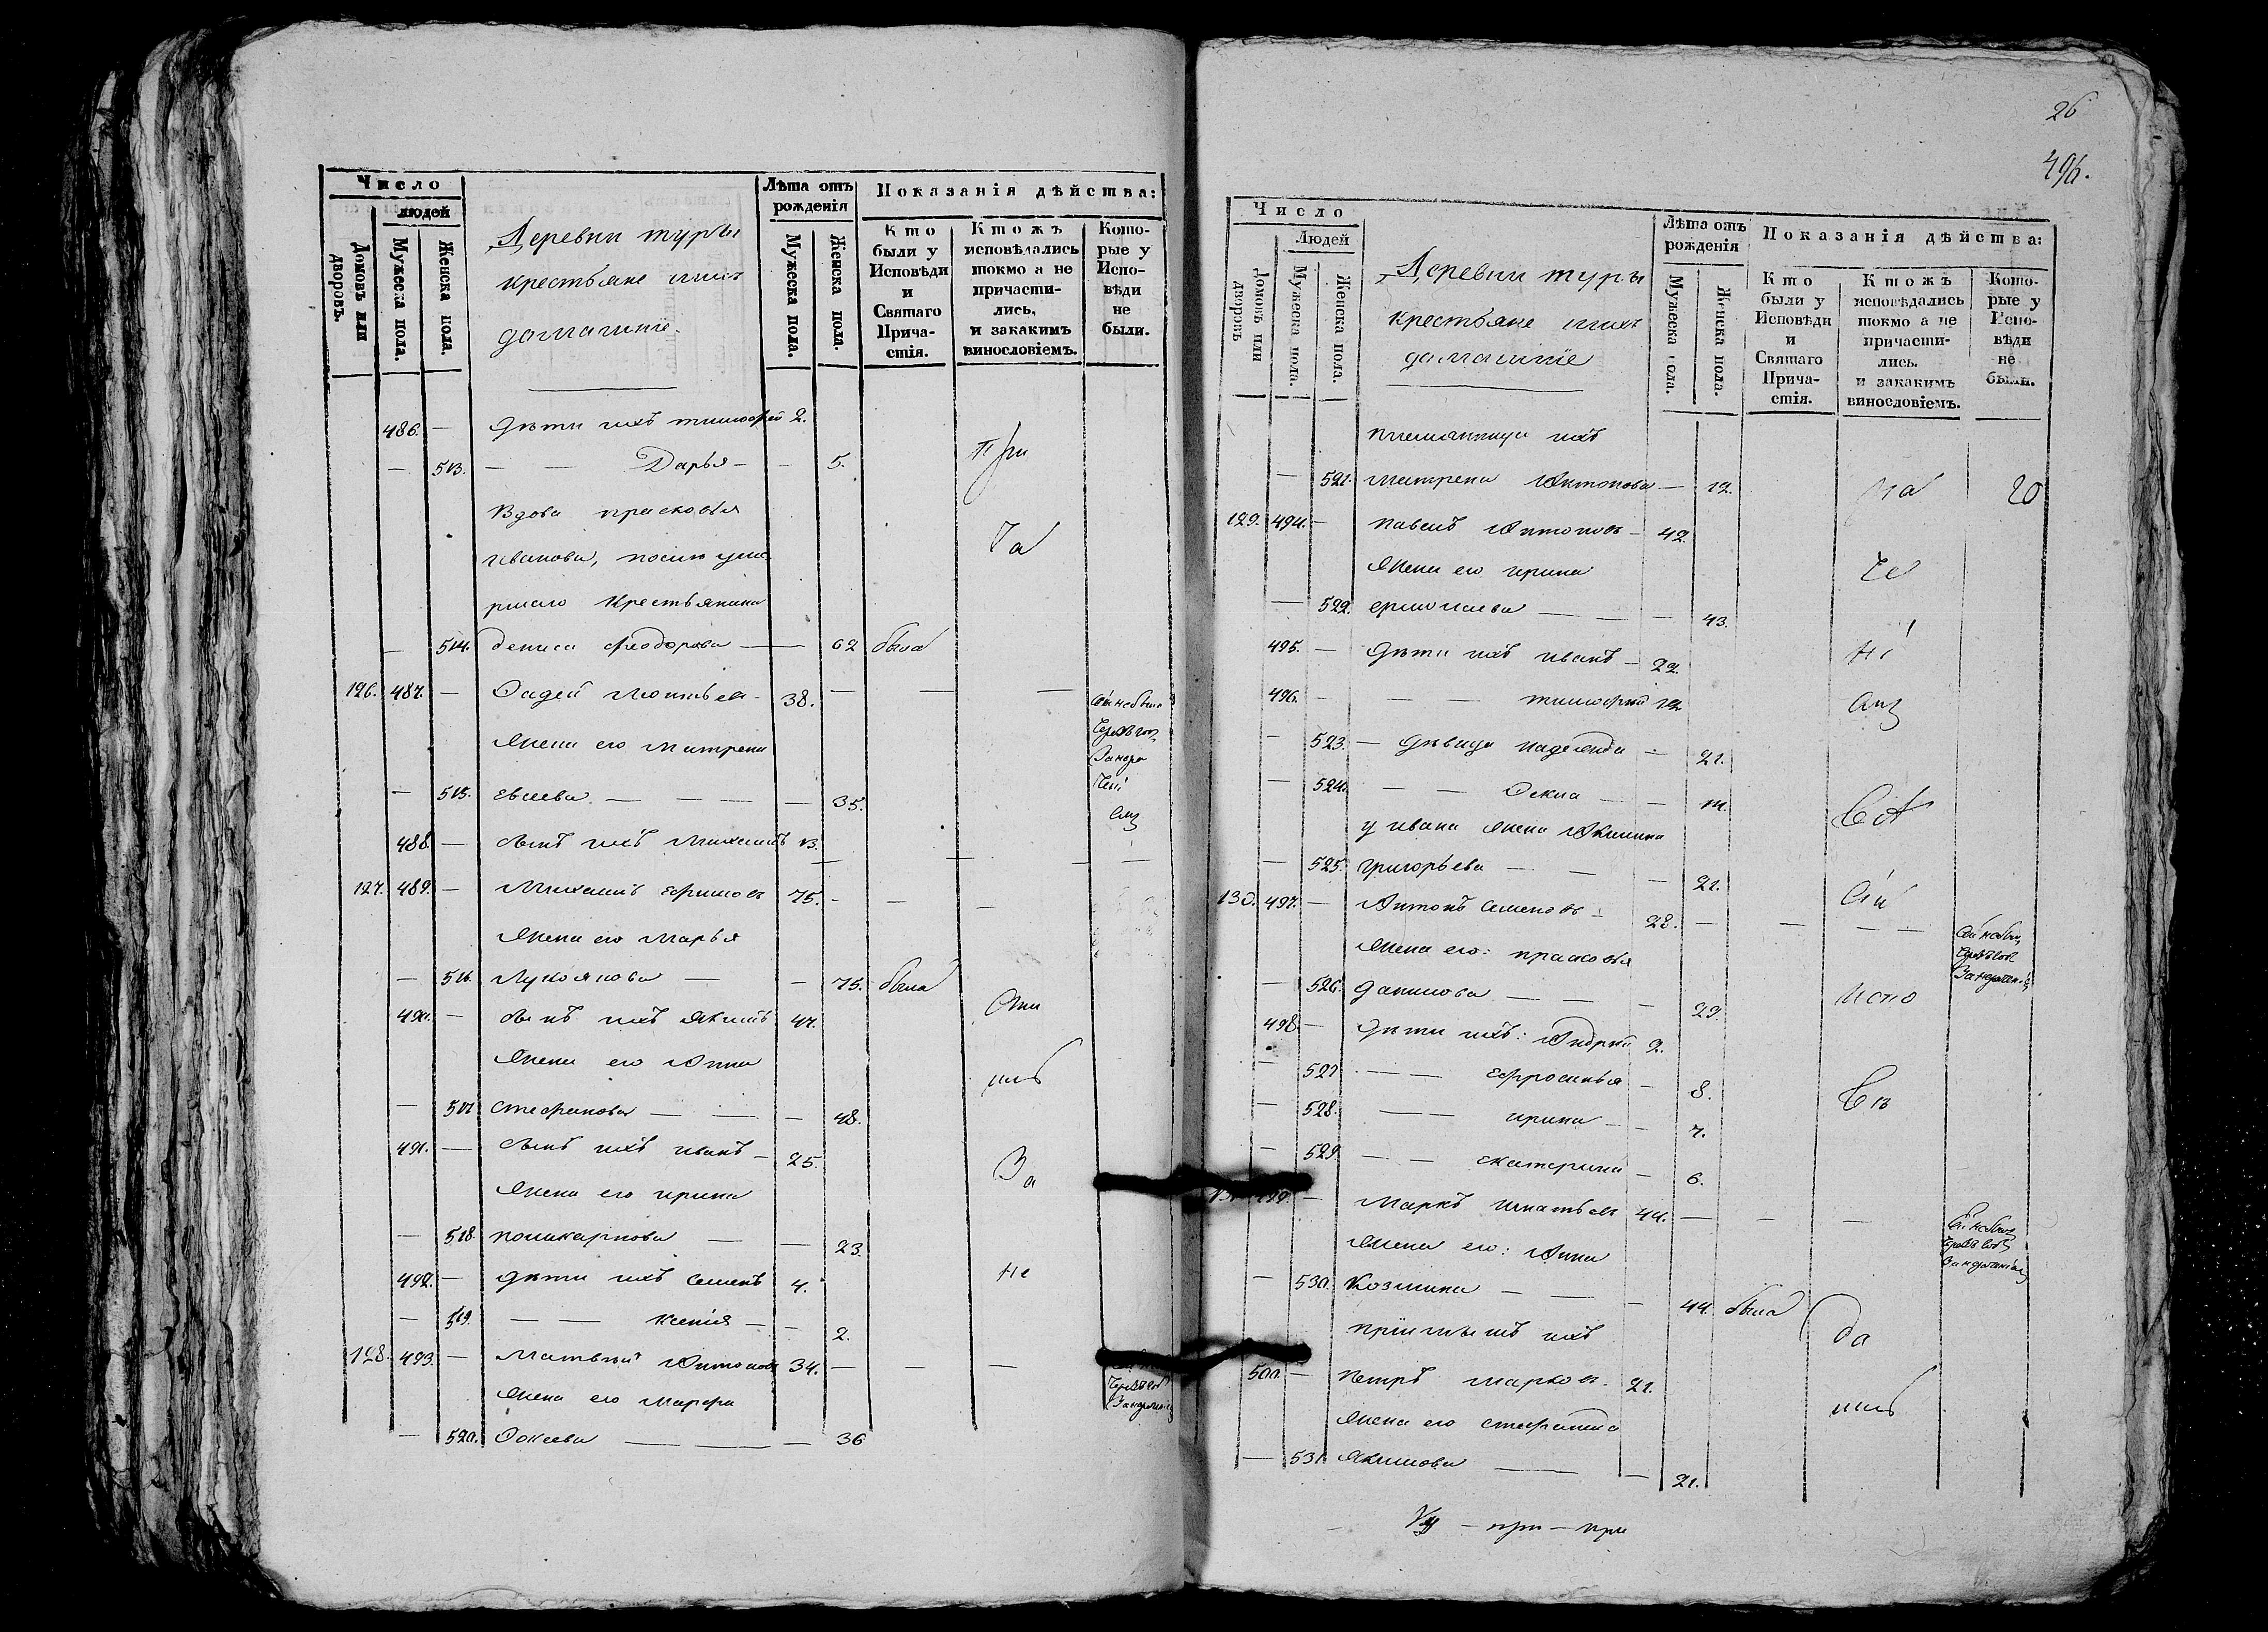 Число
людей
Домовъ или дворовъ.
Мужеска пола.
Женска пола.
Деревни туры
крестьяне и ихъ
домашніе.
Лѣта отъ рожденія
Мужеска пола.
Женска пола.
Показанія дѣйства:
Кто были у Исповѣди и Святаго Прича- стія.
Ктожъ исповѣдались токмо а не причасти- лись, и закакимъ винословіемъ.
Кото- рые у Испо- вѣди не были.
486. — Дѣти ихъ тимофей 2.
— 513. — — Дарья — — 5.
Вдова прасковья
Иванова, после уме
ршаго Крестьянина
— 514. дениса Феодорова — 62 была
126. 487. — Фадей 38. — — —
Жена его Матрена
— 515. Евсеева — — — — 35.
488. — сынъ ихъ Михаилъ 13.
127. 489. — Михаилъ Ефимовъ 75. — — —
Жена его Марья
— 516. Лукоянова — — 75. была
490. — сынъ ихъ Якимъ 47.
Жена его Анна
— 517. Стефанова — — — 48.
491. — сынъ ихъ иванъ — 25.
Жена его ирина
— 518. поликарпова — — 23.
492. — Дѣти ихъ Семенъ 4.
— 519. — — Ксенія — — 2.
128. 493. — Матвѣй Антоновъ 34. — — —
Жена его Марфа
— 520. Фокеева — — 36
При
ча
сти
лись
За
не
26
496.
Число
Людей
Домовъ или дворовъ
Мужеска пола.
Женска пола.
Деревни туры
крестьяне и ихъ
домашніе
Лѣта отъ рожденія
Мужеска пола.
Женска пола.
Показанія дѣйства:
Кто были у Исповѣди и Святаго Прича- стія.
Ктожъ исповѣдались токмо а не причасти- лись. и закакимъ винословіемъ.
Кото- рые у Испо- вѣди не были.
племянница ихъ
— 521. Матрена Антонова — 12.
129. 494. — павелъ Антоновъ — 42.
Жена его ирина
— 522. ермолаева — — — 43.
495. — Дѣти ихъ иванъ — 22.
496. — — — тимофей 12.
— 523. — дѣвица надежда — 21.
— 524. — — Фекла — —
у ивана жена Акилина
— 525. Григорьева — — — 21.
130. 497. — Антонъ Семеновъ — 28. — — — —
Жена его: прасковья
— 526. данилова — — — 29.
498. — Дѣти ихъ: Андрей 2.
— 527. — — Ефросинья — 8.
— 528. — — ирина — — 7.
— 529. — — екатерина — 6.
— Маркъ игнатьевъ 44. — — —
Жена его: Анна
— 530. Козмина — — — 44. была
пріимышъ ихъ
500. — Петръ марковъ. 21.
Жена его стефанида
— 531. Якимова — — 21.
испо
вѣ
да
лись